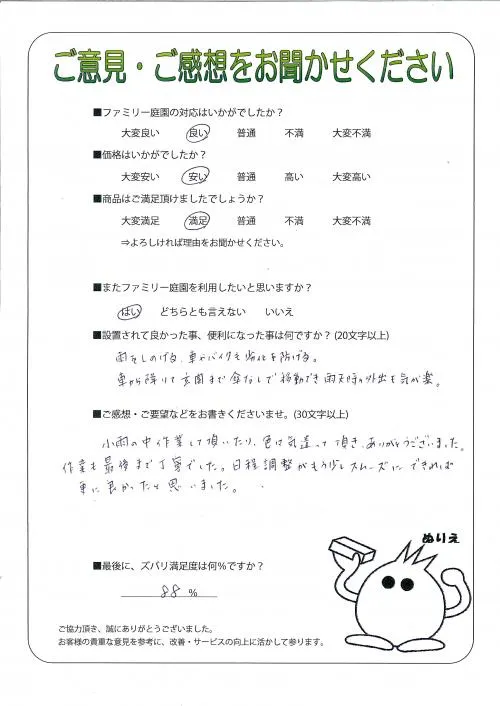 ご意見・ご感想をお聞かせください
■ファミリー庭園の対応はいかがでしたか？
大変良い 良い 普通 不満 大変不満
■価格はいかがでしたか？
大変安い 安い 普通 高い 大変高い
■商品はご満足頂けましたでしょうか？
大変満足 満足 普通 不満 大変不満
⇒よろしければ理由をお聞かせください。
■またファミリー庭園を利用したいと思いますか？
はい どちらとも言えない いいえ
■設置されて良かった事、便利になった事は何ですか？(20文字以上)
雨をしのげる、車やバイクも劣化を防げる。
車から降りて玄関まで傘なしで移動でき雨天時の外出も気が楽。
■ご感想・ご要望などをお書きくださいませ。(30文字以上)
小雨の中作業して頂いたり、色々気遣って頂き、ありがとうございました。
作業も最後まで丁寧でした。日程調整がもう少しスムーズにできれば
更に良かったと思いました。
ぬりえ
■最後に、ズバリ満足度は何%ですか？
88 %
ご協力頂き、誠にありがとうございました。
お客様の貴重な意見を参考に、改善・サービスの向上に活かして参ります。